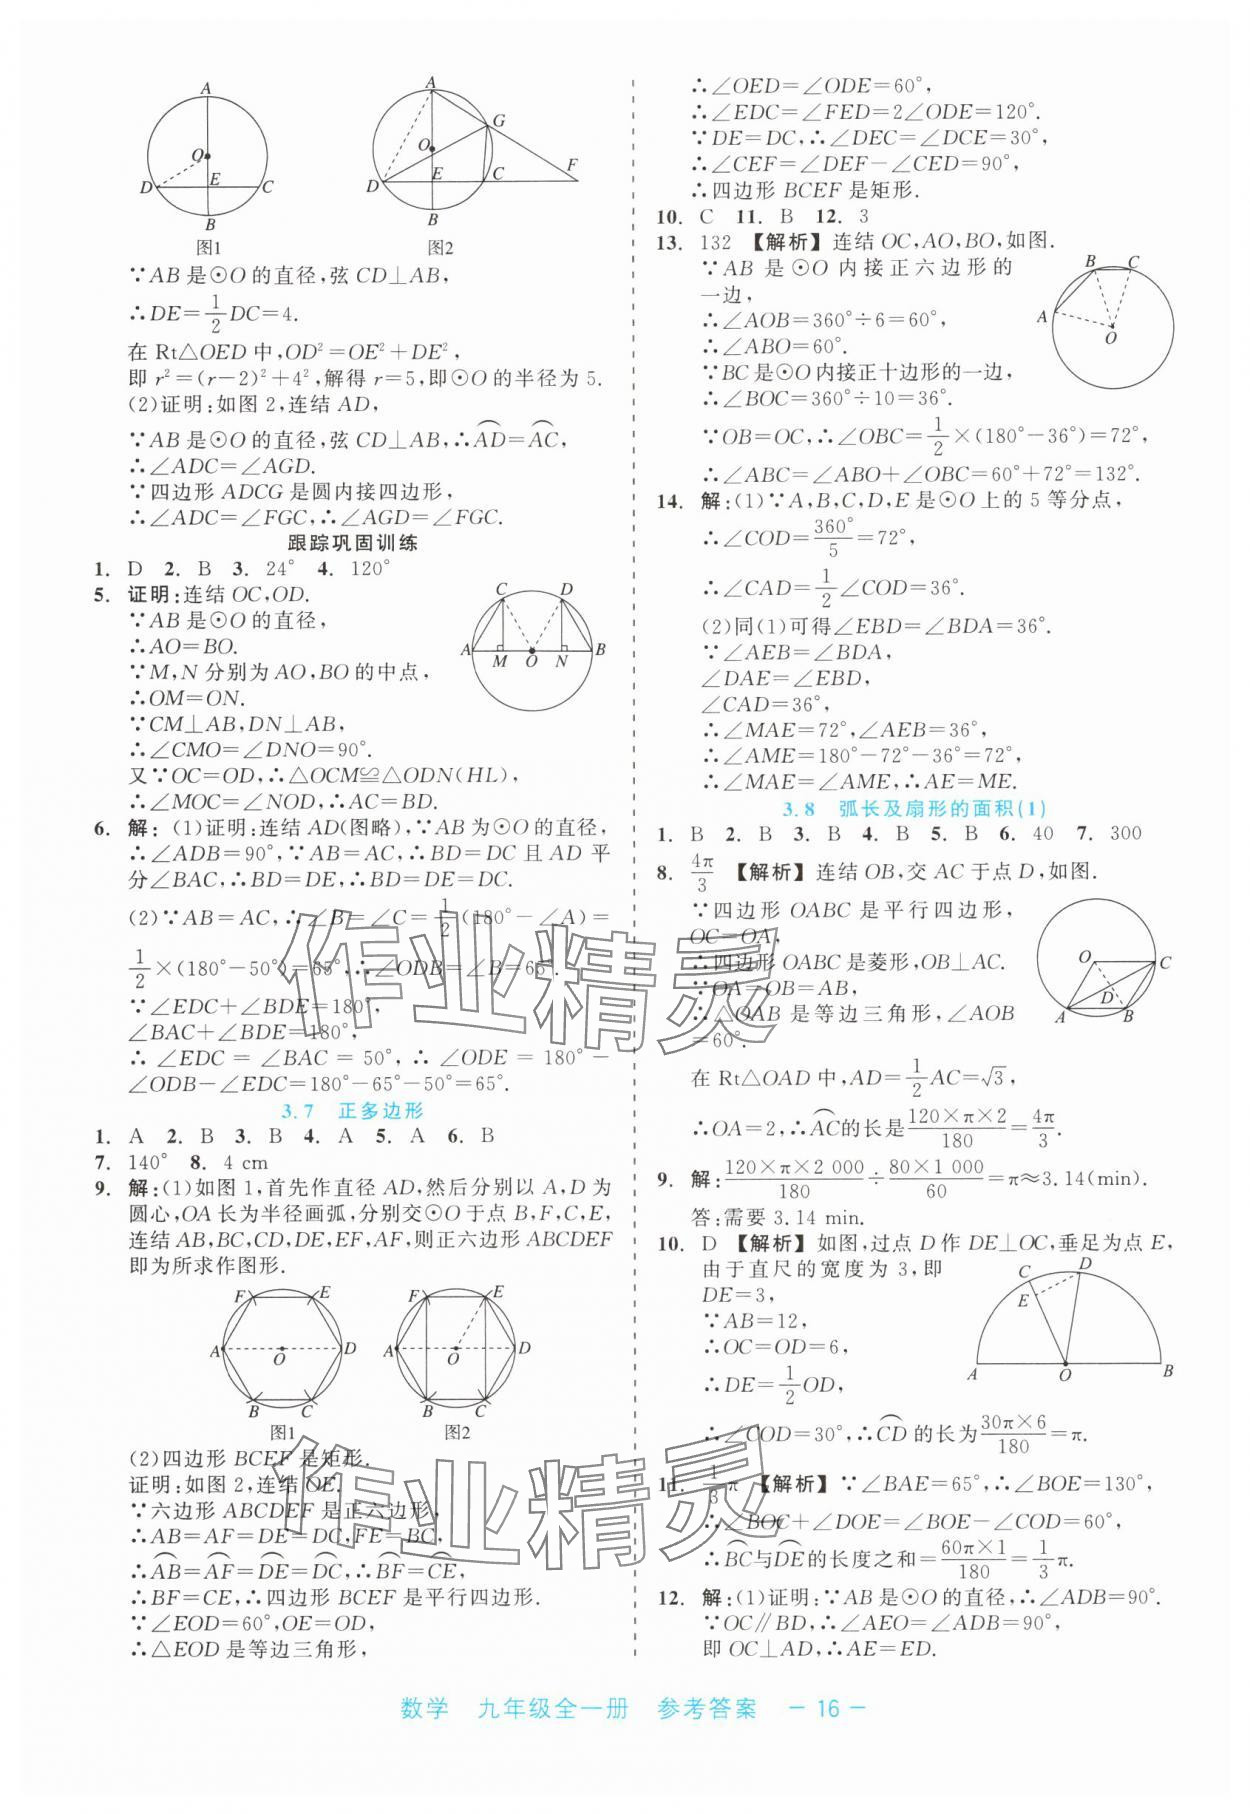 A
O
D
E
C
B
图1
A
G
O
F
D
E
C
B
图2
∵AB 是⊙O 的直径,弦 CD⊥AB,
∴DE=1/2DC=4.
在 Rt△OED 中,OD²=OE²+DE²,
即 r²=(r−2)²+4²,解得 r=5,即⊙O 的半径为 5.
(2)证明:如图 2,连结 AD,
∵AB 是⊙O 的直径,弦 CD⊥AB,∴⌒AD=⌒AC,
∴∠ADC=∠AGD.
∵四边形 ADCG 是圆内接四边形,
∴∠ADC=∠FGC,∴∠AGD=∠FGC.
跟踪巩固训练
1. D 2. B 3. 24° 4. 120°
5. 证明:连结 OC,OD.
∵AB 是⊙O 的直径,
∴AO=BO.
∵M,N 分别为 AO,BO 的中点,
∴OM=ON.
∵CM⊥AB,DN⊥AB,
∴∠CMO=∠DNO=90°.
又∵OC=OD,∴△OCM≌△ODN(HL),
∴∠MOC=∠NOD,∴AC=BD.
C D
A M O N B
6. 解: (1)证明:连结 AD(图略),∵AB 为⊙O 的直径,
∴∠ADB=90°,∵AB=AC,∴BD=DC 且 AD 平
分∠BAC,∴BD=DE,∴BD=DE=DC.
(2)∵AB=AC,∴∠B=∠C=1/2(180°−∠A)=
1/2×(180°−50°)=65°,∴∠ODB=∠B=65°.
∵∠EDC+∠BDE=180°,
∠BAC+∠BDE=180°,
∴∠EDC=∠BAC=50°,∴∠ODE=180°−
∠ODB−∠EDC=180°−65°−50°=65°.
3.7 正多边形
1. A 2. B 3. B 4. A 5. A 6. B
7. 140° 8. 4 cm
9. 解:(1)如图 1,首先作直径 AD,然后分别以 A,D 为
圆心,OA 长为半径画弧,分别交⊙O 于点 B,F,C,E,
连结 AB,BC,CD,DE,EF,AF,则正六边形 ABCDEF
即为所求作图形.
F E
A O D
B C
图1
F E
A O D
B C
图2
(2)四边形 BCEF 是矩形.
证明:如图 2,连结 OE.
∵六边形 ABCDEF 是正六边形,
∴AB=AF=DE=DC,FE=BC,
∴⌒AB=⌒AF=⌒DE=⌒DC,∴⌒BF=⌒CE,
∴BF=CE,∴四边形 BCEF 是平行四边形.
∵∠EOD=60°,OE=OD,
∴△EOD 是等边三角形,
∴∠OED=∠ODE=60°,
∴∠EDC=∠FED=2∠ODE=120°.
∵DE=DC,∴∠DEC=∠DCE=30°,
∴∠CEF=∠DEF−∠CED=90°,
∴四边形 BCEF 是矩形.
10. C 11. B 12. 3
13. 132 【解析】连结 OC,AO,BO,如图.
∵AB 是⊙O 内接正六边形的
一边,
∴∠AOB=360°÷6=60°,
∴∠ABO=60°.
∵BC是⊙O内接正十边形的一边,
∴∠BOC=360°÷10=36°.
∵OB=OC,∴∠OBC=1/2×(180°−36°)=72°,
∴∠ABC=∠ABO+∠OBC=60°+72°=132°.
B C
A
O
14. 解:(1)∵A,B,C,D,E 是⊙O 上的 5 等分点,
∴∠COD=360°/5=72°,
∴∠CAD=1/2∠COD=36°.
(2)同(1)可得∠EBD=∠BDA=36°.
∵∠AEB=∠BDA,
∠DAE=∠EBD,
∠CAD=36°,
∴∠MAE=72°,∠AEB=36°,
∴∠AME=180°−72°−36°=72°,
∴∠MAE=∠AME,∴AE=ME.
3.8 弧长及扇形的面积(1)
1. B 2. B 3. B 4. B 5. B 6. 40 7. 300
8. 4π/3 【解析】连结 OB,交 AC 于点 D,如图.
∵四边形 OABC 是平行四边形,
OC=OA,
∴四边形 OABC 是菱形,OB⊥AC.
∵OA=OB=AB,
∴△OAB 是等边三角形,∠AOB
=60°.
在 Rt△OAD 中,AD=1/2AC=√3,
∴OA=2,∴⌒AC的长是120×π×2/180=4π/3.
O
C
D
A B
9. 解:120×π×2 000/180÷80×1 000/60=π≈3.14(min).
答:需要 3.14 min.
10. D 【解析】如图,过点 D 作 DE⊥OC,垂足为点 E,
由于直尺的宽度为 3,即
DE=3,
∵AB=12,
∴OC=OD=6,
∴DE=1/2OD,
∴∠COD=30°,∴⌒CD 的长为30π×6/180=π.
C D
E
A O B
11. 1/3π 【解析】∵∠BAE=65°,∴∠BOE=130°,
∴∠BOC+∠DOE=∠BOE−∠COD=60°,
∴⌒BC与⌒DE的长度之和=60π×1/180=1/3π.
12. 解:(1)证明:∵AB 是⊙O 的直径,∴∠ADB=90°.
∵OC∥BD,∴∠AEO=∠ADB=90°,
即 OC⊥AD,∴AE=ED.
作业精灵
作业精灵
数学 九年级全一册 参考答案 −16−